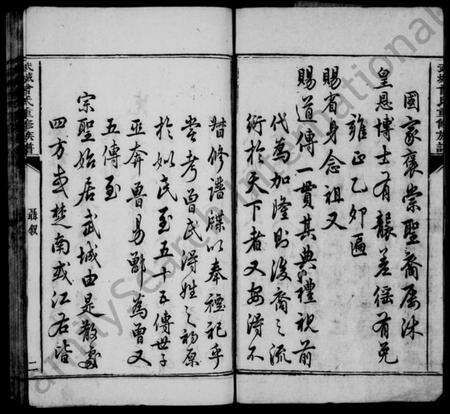 國家褒崇聖裔屢沐
皇恩博士有襲差徭有免
雍正乙卯匾
賜省身念祖又
賜道傳一貫其典禮視前
代為加隆則後裔之流
衍於天下者又安得不
督修譜牒以奉禋祀乎
嘗考曾氏得姓之初原
於姒氏至五十五傳世子
巫奔魯易鄫為曾又
五傳至
宗聖始居武城由是散處
四方或楚南或江右
武城曾氏重修族譜
敘
一
FamilySearch International